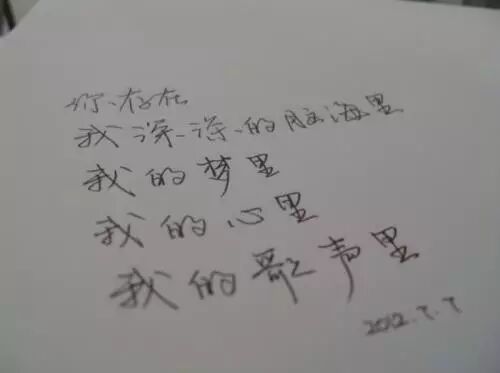 你存在
我深深的脑海里
我的梦里
我的心里
我的歌声里
2012.7.7